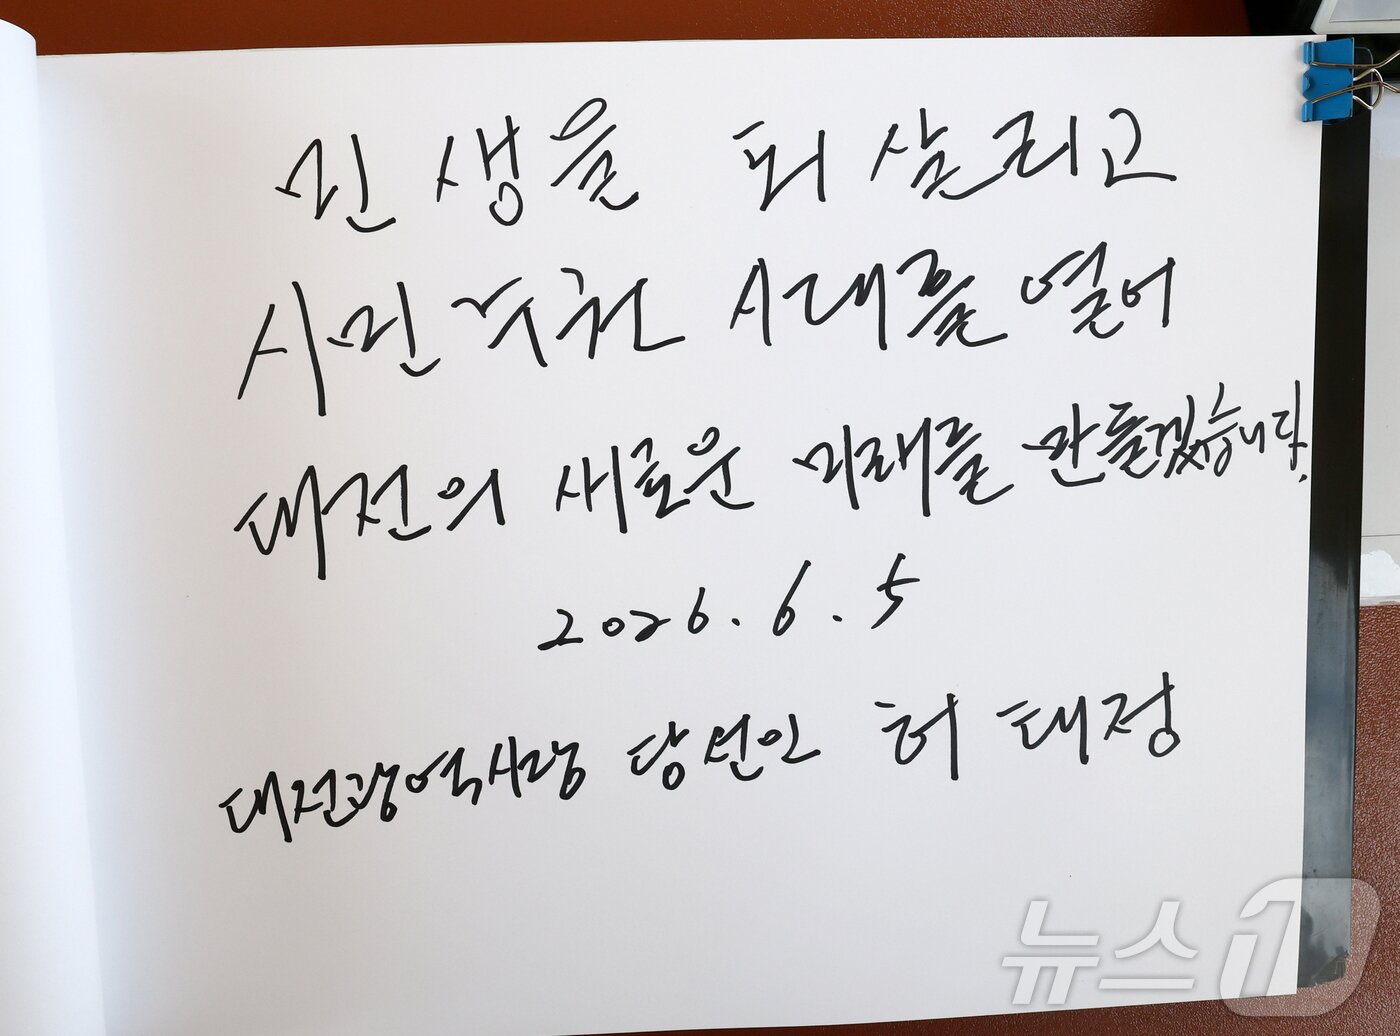 민생을 되살리고
시민주권 시대를 열어
대전의 새로운 미래를 만들겠습니다.
2026. 6. 5
대전광역시장 당선인 허태정
뉴스1